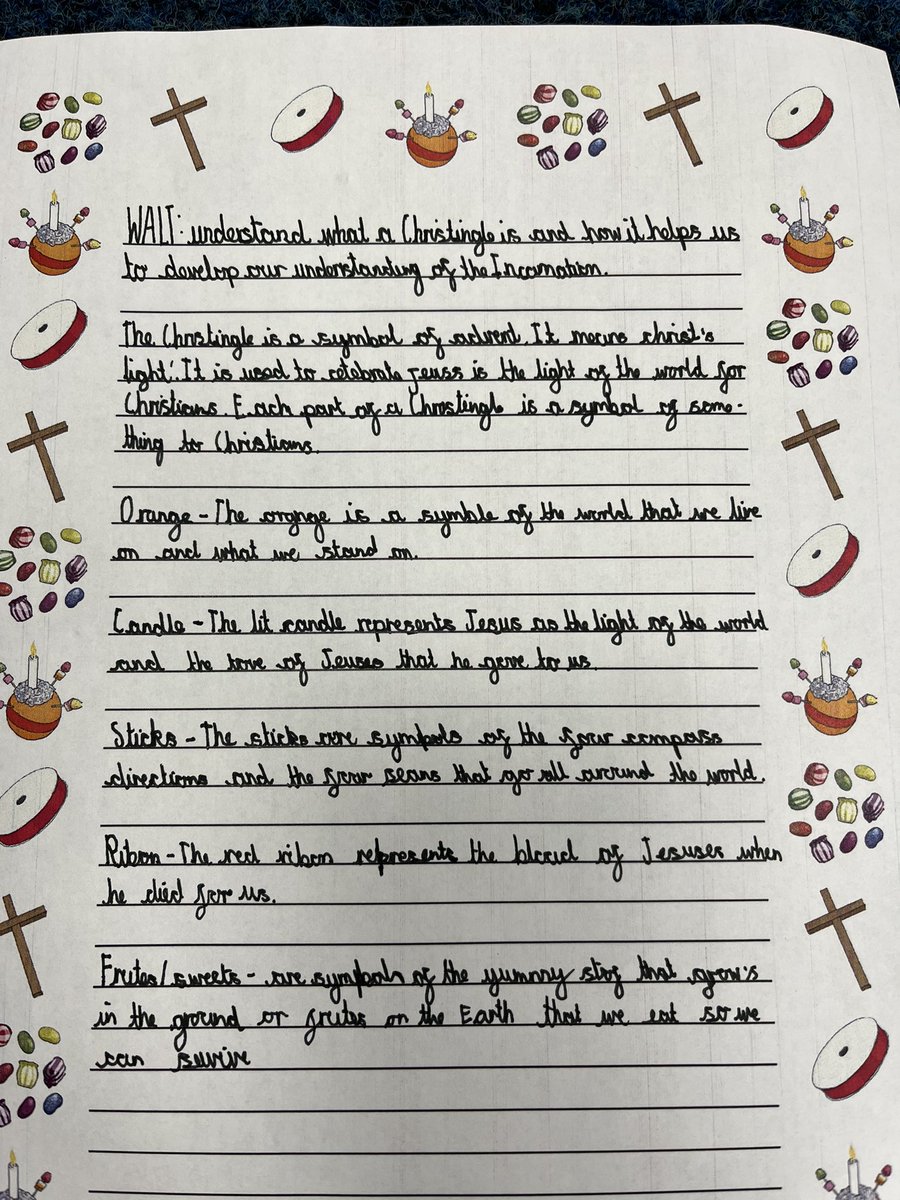 WALT: understand what a Christingle is and how it helps us
to develop our understanding of the Incarnation.
The Christingle is a symbol of advent. It means christ's
light'. It is used to celebrate jeuss is the light of the world for
Christians. Each part of a Christingle is a symbol of some-
thing to Christians.
Orange - The orange is a symble of the world that we live
on and what we stand on.
Candle - The lit candle represents Jesus as the light of the world
and the love of Jeuses that he gave to us.
Sticks - The sticks are symbols of the four compass
directions and the four seans that go all around the world.
Ribon - The red ribon represents the blood of Jesuses when
he died for us.
Frutes/sweets - are symbols of the yummy stof that grow's
in the ground or frutes on the Earth that we eat so we
can surive